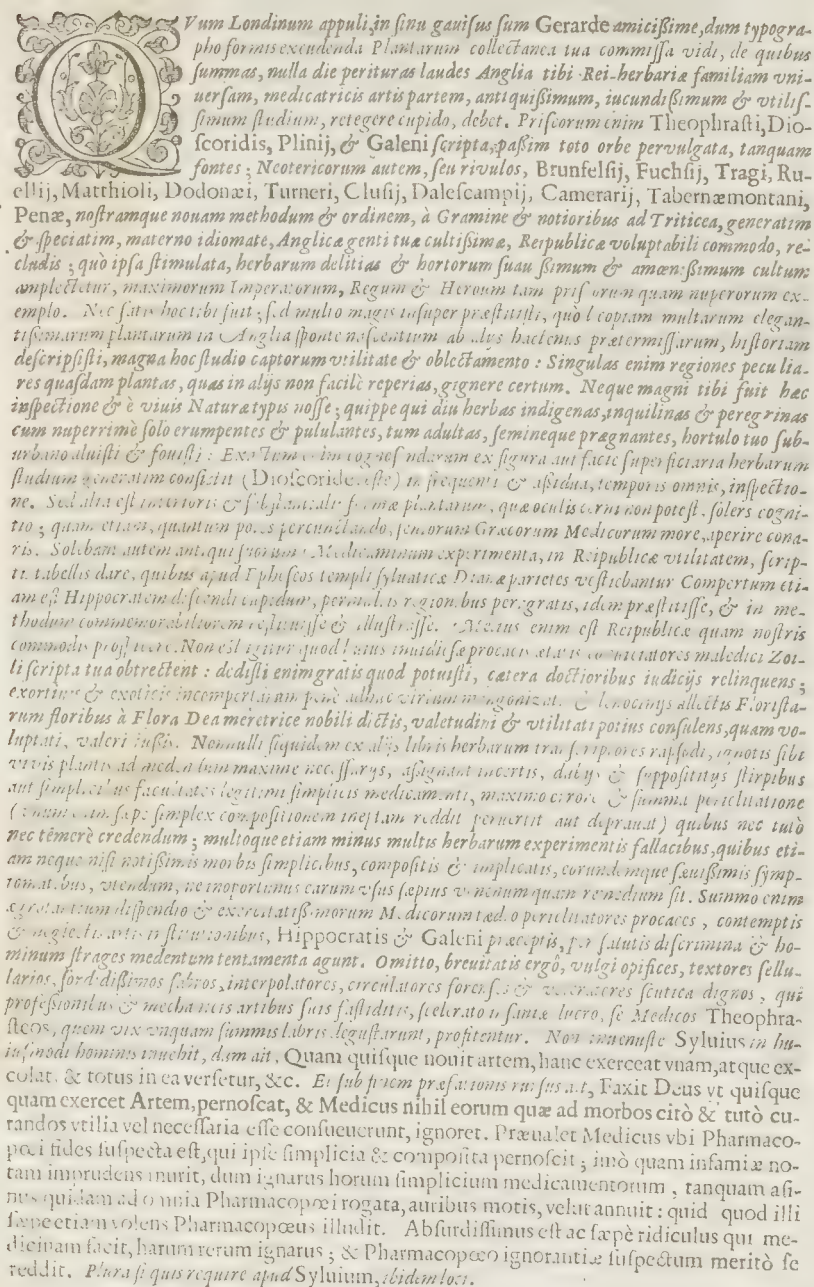 QVum Londinum appuli, in sinu gauisus sum Gerarde amicißime, dum typogra-
pho formis excudenda Plantarum collectanea tua commissa vidi, de quibus
summas, nulla die perituras laudes Anglia tibi Rei-herbariæ familiam vni-
uersam, medicatricis artis partem, antiquißimum, iucundißimum & vtilis-
simum studium, retegere cupido, debet. Priscorum enim Theophrasti, Dio-
scoridis, Plinij, & Galeni scripta, paßim toto orbe pervulgata, tanquam
fontes; Neotericorum autem, seu rivulos, Brunfelsij, Fuchsij, Tragi, Ru-
ellij, Matthioli, Dodonæi, Turneri, Clusij, Dalescampij, Camerarij, Tabernæmontani,
Penæ, nostramque nouam methodum & ordinem, à Gramine & notioribus ad Triticea, generatim
& speciatim, materno idiomate, Anglicæ genti tuæ cultißimæ, Reipublicæ voluptabili commodo, re-
cludis; quò ipsa stimulata, herbarum delitias & hortorum suauißimum & amœnißimum cultum
amplectetur, maximorum Imperatorum, Regum & Heroum tam priscorum quam nuperorum ex-
emplo. Nec satis hoc tibi fuit; sed multo magis insuper præstitisti, quòd copiam multarum elegan-
tißimarum plantarum in Anglia sponte nascentium ab alijs hactenus prætermissarum, historiam
descripsisti, magna hoc studio captorum vtilitate & oblectamento: Singulas enim regiones peculia-
res quasdam plantas, quas in alijs non facilè reperias, gignere certum. Neque magni tibi fuit hæc
inspectione & è viuis Naturæ typis nosse; quippe qui diu herbas indigenas, inquilinas & peregrinas
cum nuperrimè solo erumpentes & pululantes, tum adultas, semineque prægnantes, hortulo tuo sub-
urbano aluisti & fouisti: enim ex figura aut facie superficiaria herbarum
studium generatim consistit (Dioscoride teste) in frequenti & aßidua, temporis omnis, inspectio-
ne. Sed alia est interioris & substantialis formæ plantarum, quæ oculis cerni non potest, solers cogni-
tio; quam etiam, quantum potes percunctando, seniorum Græcorum Medicorum more, aperire cona-
ris. Solebant autem antiqui suorum Medicaminum experimenta, in Reipublicæ vtilitatem, scrip-
tis tabellis dare, quibus apud Ephescos templi syluaticæ Dianæ parietes vestiebantur. Compertum eti-
am est Hippocratem discendi cupidum, permultis regionibus peragratis, idem præstitisse, & in me-
thodum commemorabiliorem restituisse & illustrasse. Melius enim est Reipublicæ quam nostris
commodis . Non est igitur quod huius inuidiosæ procacis ætatis maledici Zoi-
li scripta tua obtrectent: dedisti enim gratis quod potuisti, cætera doctioribus iudicijs relinquens;
& exoticis penè adhuc virium . lenocinijs allectis Florista-
rum floribus à Flora Dea meretrice nobili dictis, valetudini & vtilitati potius consulens, quam vo-
luptati, valeri iußis. Nonnulli siquidem ex alijs libris herbarum rapsodi, ignotis sibi
vivis plantis ad medendum maxime necessarijs, assignant incertis, dubijs & supposititijs stirpibus
aut simplicibus facultates legitimi simplicis medicamenti, maximo errore & summa periclitatione
( enim sæpe simplex compositionem ineptam reddit peruertit aut deprauat) quibus nec tutò
nec témerè credendum; multoque etiam minus multis herbarum experimentis fallacibus, quibus eti-
am neque nisi notißimis morbis simplicibus, compositis & implicatis, eorundemque sæuißimis symp-
tomatibus, vtendum, ne inoportunus earum vsus sæpius venenum quam remedium sit. Summo enim
ægrotantium dispendio & exercitatißimorum Medicorum tædio periclitatores procaces, contemptis
& neglectis artis , Hippocratis & Galeni præceptis, per salutis discrimina & ho-
minum strages medentum tentamenta agunt. Omitto, breuitatis ergò, vulgi opifices, textores sellu-
larios, sordidißimos fabros, interpolatores, circulatores forenses & scutica dignos, qui
professionibus & mechanicis artibus suis fastiditis, scelerato insaniæ lucro, se Medicos Theophra-
steos, quem vix vnquam summis labris degustarunt, profitentur. Non inuenuste Syluius in hu-
iusmodi hominis inuehit, dum ait, Quam quisque nouit artem, hanc exerceat vnam, atque ex-
colat, & totus in ea versetur, &c. Et sub finem præfationis rursus ait, Faxit Deus vt quisque
quam exercet Artem, pernoscat, & Medicus nihil eorum quæ ad morbos citò & tutò cu-
randos vtilia vel necessaria esse consueuerunt, ignoret. Præualet Medicus vbi Pharmaco-
pœi fides suspecta est, qui ipse simplicia & composita pernoscit; imò quam infamiæ no-
tam imprudens inurit, dum ignarus horum simplicium medicamentorum, tanquam asi-
nus quidam ad omnia Pharmacopœi rogata, auribus motis, velut annuit: quid quod illi
sæpe etiam volens Pharmacopœus illudit. Absurdissimus est ac sæpè ridiculus qui me-
dicinam facit, harum rerum ignarus; & Pharmacopœo ignorantiæ suspectum meritò se
reddit. Plura si quis require apud Syluium, ibidem loci.